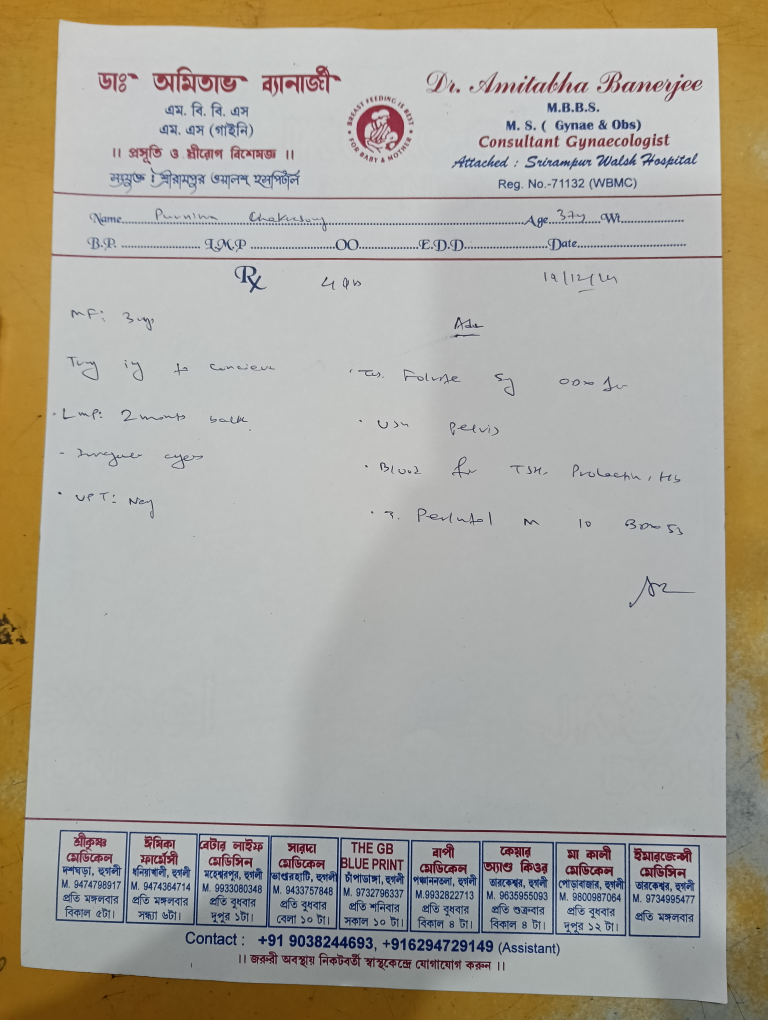 ডাঃ অমিতাভ ব্যানার্জী
এম. বি. বি. এস
এম. এস (গাইনি)
।। প্রসূতি ও স্ত্রীরোগ বিশেষজ্ঞ ।।
সংযুক্ত : শ্রীরামপুর ওয়ালশ হসপিটাল
BREAST FEEDING IS BEST
FOR BABY & MOTHER
Dr. Amitabha Banerjee
M.B.B.S.
M. S. ( Gynae & Obs)
Consultant Gynaecologist
Attached : Srirampur Walsh Hospital
Reg. No.-71132 (WBMC)
Name Purnima Age 37y Wt
B.P. L.M.P OO E.D.D. Date
Rx
MF: 3 yrs
Adv
Trying to concieve
LMP: 2 months back
Irregular cycles
UPT: Neg
Folvite 5
USG Pelvis
Blood for TSH, Prolactin, Hb
T. 10
শ্রীকৃষ্ণ মেডিকেল
দশঘড়া, হুগলী
M. 9474798917
প্রতি মঙ্গলবার
বিকাল ৫টা।
ঈষিকা ফার্মেসী
ধনিয়াখালী, হুগলী
M. 9474364714
প্রতি মঙ্গলবার
সন্ধ্যা ৬টা।
বেটার লাইফ মেডিসিন
মহেশ্বরপুর, হুগলী
M. 9933080348
প্রতি বুধবার
দুপুর ১টা।
সারদা মেডিকেল
ভাণ্ডারহাটি, হুগলী
M. 9433757848
প্রতি বুধবার
বেলা ১০ টা।
THE GB BLUE PRINT
চাঁপাডাঙ্গা, হুগলী
M. 9732796337
প্রতি শনিবার
সকাল ১০ টা।
বাপী মেডিকেল
পঞ্চাননতলা, হুগলী
M.9932822713
প্রতি বুধবার
বিকাল ৪ টা।
কেয়ার অ্যাণ্ড কিওর
তারকেশ্বর, হুগলী
M. 9635955093
প্রতি শুক্রবার
বিকাল ৪ টা।
মা কালী মেডিকেল
পোড়াবাজার, হুগলী
M. 9800987064
প্রতি বুধবার
দুপুর ১২ টা।
ইমারজেন্সী মেডিসিন
তারকেশ্বর, হুগলী
M. 9734995477
প্রতি মঙ্গলবার
Contact : +91 9038244693, +916294729149 (Assistant)
।। জরুরী অবস্থায় নিকটবর্তী স্বাস্থকেন্দ্রে যোগাযোগ করুন ।।